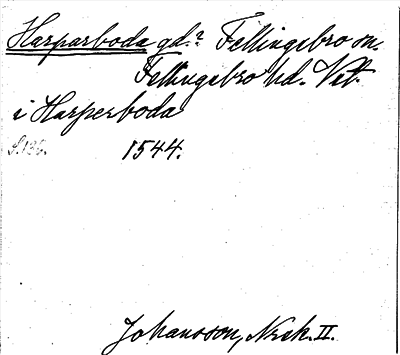 Harparboda gd.? Fellingsbro sn.
Fellingsbro hd. Vst.
i Harperboda
1544.
Johansson, Nrck. II.